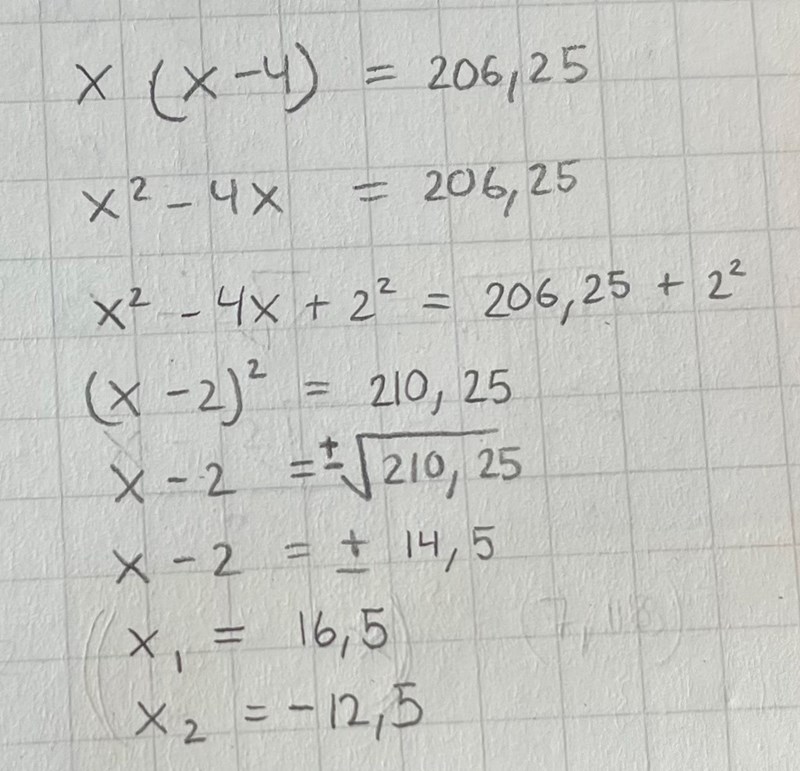 x (x-4) = 206,25
x² - 4x = 206,25
x² - 4x + 2² = 206,25 + 2²
(x - 2)² = 210,25
x - 2 = ±√210,25
x - 2 = ± 14,5
x₁ = 16,5
x₂ = -12,5